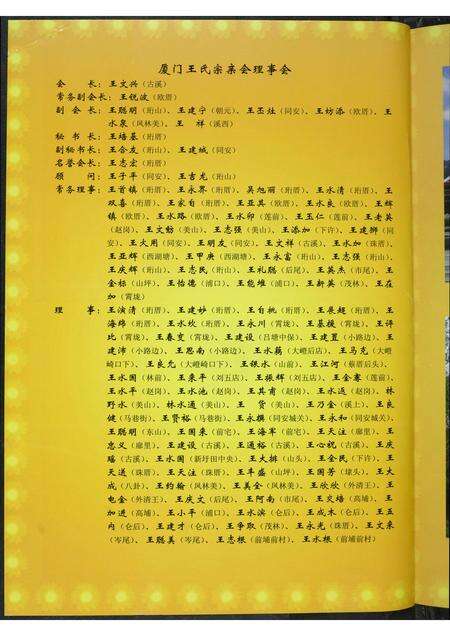 厦门王氏宗亲会理事会
会　　长：王文兴（古溪）
常务副会长：王锐波（欧厝）
副 会 长：王聪明（珩山）、王建宁（朝元）、王丕灶（同安）、王坊添（欧厝）、王
水泉（凤林美）、王　祥（溪西）
秘 书 长：王培基（珩厝）
副秘书长：王合友（珩山）、王建城（同安）
名誉会长：王志宏（珩厝）
顾　　问：王子平（同安）、王吉龙（珩山）
常务理事：王首镇（珩厝）、王永界（珩厝）、吴旭丽（珩厝）、王水清（珩厝）、王
双喜（珩厝）、王家自（珩厝）、王亚其（欧厝）、王水良（欧厝）、王辉
镇（欧厝）、王水路（欧厝）、王水印（莲前）、王玉仁（莲前）、王考英
（赵岗）、王文舫（美山）、王志强（美山）、王添加（下许）、王建狮（同
安）、王大用（同安）、王明友（同安）、王文祥（古溪）、王水加（珠厝）、
王亚辉（西湖塘）、王甲庚（西湖塘）、王永富（珩山）、王志强（珩山）、
王庆辉（珩山）、王志民（珩山）、王礼聪（后尾）、王英杰（市尾）、王
金标（山坪）、王怡德（浦口）、王能雄（浦口）、王新英（茂林）、王在
加（霄垅）
理　　事：王演清（珩厝）、王建妙（珩厝）、王自桃（珩厝）、王展超（珩厝）、王
海绵（珩厝）、王水炊（珩厝）、王永川（霄垅）、王基援（霄垅）、王评
比（霄垅）、王春变（霄垅）、王建设（吕塘中保）、王建置（小路边）、王
建沛（小路边）、王思南（小路边）、王水藕（大嶝后店）、王马克（大嶝
崎口下）、王良允（大嶝崎口下）、王银水（山前）、王江河（蔡厝后头）、
王水国（林前）、王秉平（刘五店）、王振辉（刘五店）、王金寨（莲前）、
王水平（赵岗）、王水池（赵岗）、王其甫（赵岗）、王水返（赵岗）、林
野水（美山）、林水通（美山）、王　贤（美山）、王乃金（溪上）、王良
健（马巷街）、王贤裕（马巷街）、王永撰（同安城关）、王永和（同安城关）、
王聪明（东山）、王国栗（前宅）、王海军（前宅）、王天注（廊里）、王
忠义（廊里）、王建设（古溪）、王通裕（古溪）、王心祝（古溪）、王庆
瑶（古溪）、王水圆（新圩田中央）、王大排（山头）、王金民（下许）、王
天送（珠厝）、王天注（珠厝）、王丰盛（山坪）、王国芳（埭头）、王大
成（八卦）、王约翰（凤林美）、王美金（凤林美）、王欣欣（外清王）、王
电金（外清王）、王庆文（后尾）、王阿南（市尾）、王炎墙（高埔）、王
加进（高埔）、王小平（浦口）、王水滨（仑后）、王成木（仑后）、王五
内（仑后）、王建才（仑后）、王争取（茂林）、王永光（珠厝）、王文来
（岑尾）、王聪美（岑尾）、王志根（前埔前村）、王水根（前埔前村）